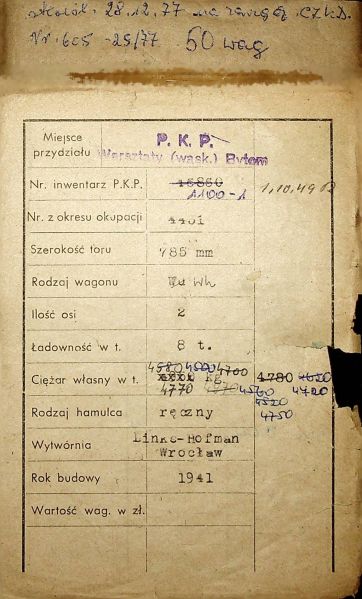 28.12.77 na
Nr. 605-25/77 50 wag
Miejsce przydziału P. K. P.
Warsztaty (wąsk.) Bytom
Nr. inwentarz P.K.P. 1100-1 1.10.49
Nr. z okresu okupacji 4401
Szerokość toru 785 mm
Rodzaj wagonu Wh
Ilość osi 2
Ładowność w t. 8 t.
4580 4500 4700
Ciężar własny w t. kg. 4780
4770 4560 4720
4520
4750
Rodzaj hamulca ręczny
Wytwórnia Linke-Hofman
Wrocław
Rok budowy 1941
Wartość wag. w zł.